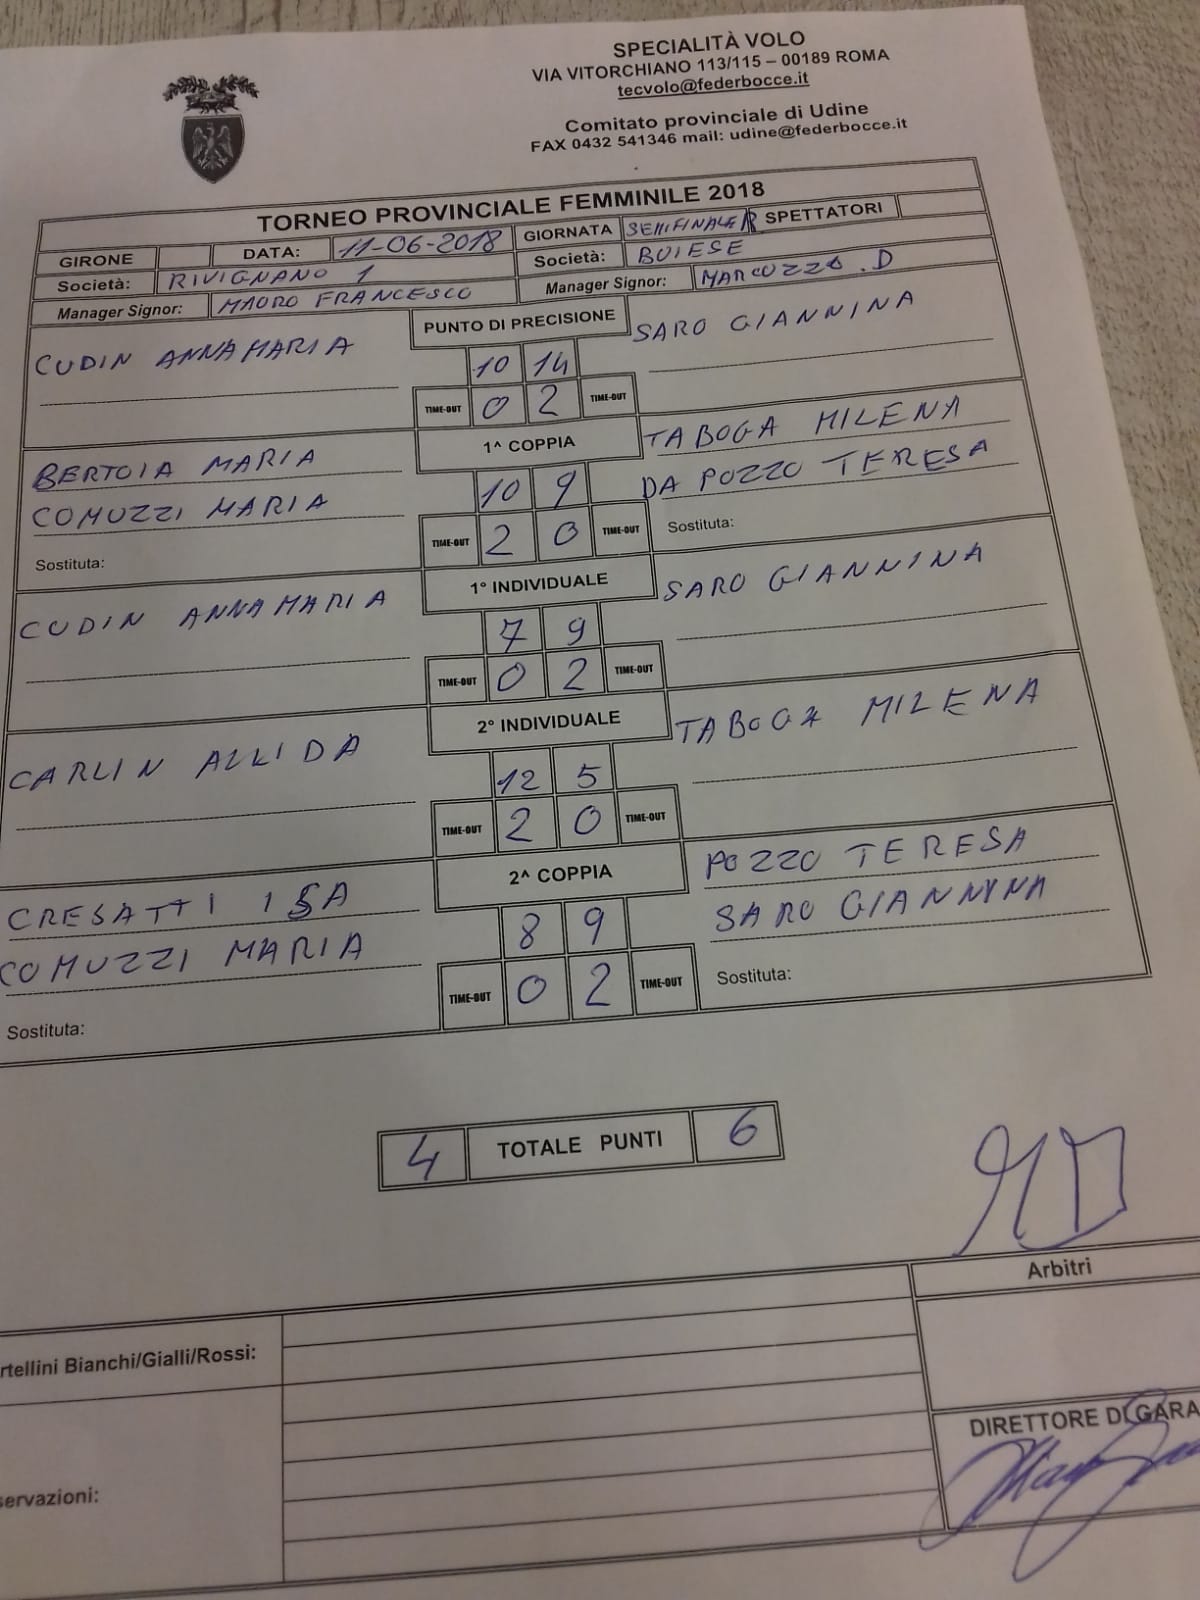 SPECIALITÀ VOLO
VIA VITORCHIANO 113/115 – 00189 ROMA
tecvolo@federbocce.it
Comitato provinciale di Udine
FAX 0432 541346 mail: udine@federbocce.it
TORNEO PROVINCIALE FEMMINILE 2018
GIRONE DATA: 11-06-2018 GIORNATA SEMIFINALE R SPETTATORI
Società: RIVIGNANO 1 Società: BUIESE
Manager Signor: MAURO FRANCESCO Manager Signor: MARCUZZO .D
CUDIN ANNAMARIA PUNTO DI PRECISIONE SARO GIANNINA
10 14
TIME-OUT 0 2 TIME-OUT
BERTOIA MARIA 1^ COPPIA TABOGA MILENA
COMUZZI MARIA 10 9 DA POZZO TERESA
Sostituta: TIME-OUT 2 0 TIME-OUT Sostituta:
CUDIN ANNAMARIA 1° INDIVIDUALE SARO GIANNINA
7 9
TIME-OUT 0 2 TIME-OUT
CARLIN ALLIDA 2° INDIVIDUALE TABOGA MILENA
12 5
TIME-OUT 2 0 TIME-OUT
CRESATTI ISA 2^ COPPIA POZZO TERESA
COMUZZI MARIA 8 9 SARO GIANNINA
Sostituta: TIME-OUT 0 2 TIME-OUT Sostituta:
4 TOTALE PUNTI 6
Arbitri
rtellini Bianchi/Gialli/Rossi:
DIRETTORE DI GARA
servazioni: